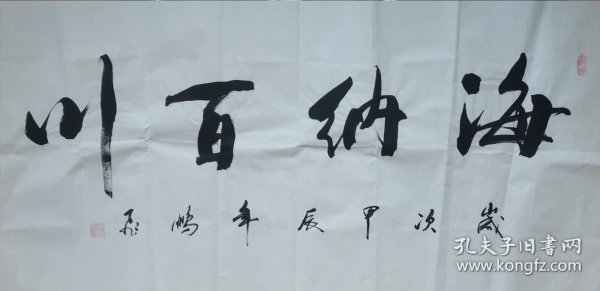 海纳百川
岁次甲辰年鹏飞
孔夫子旧书网
www.kongfz.com